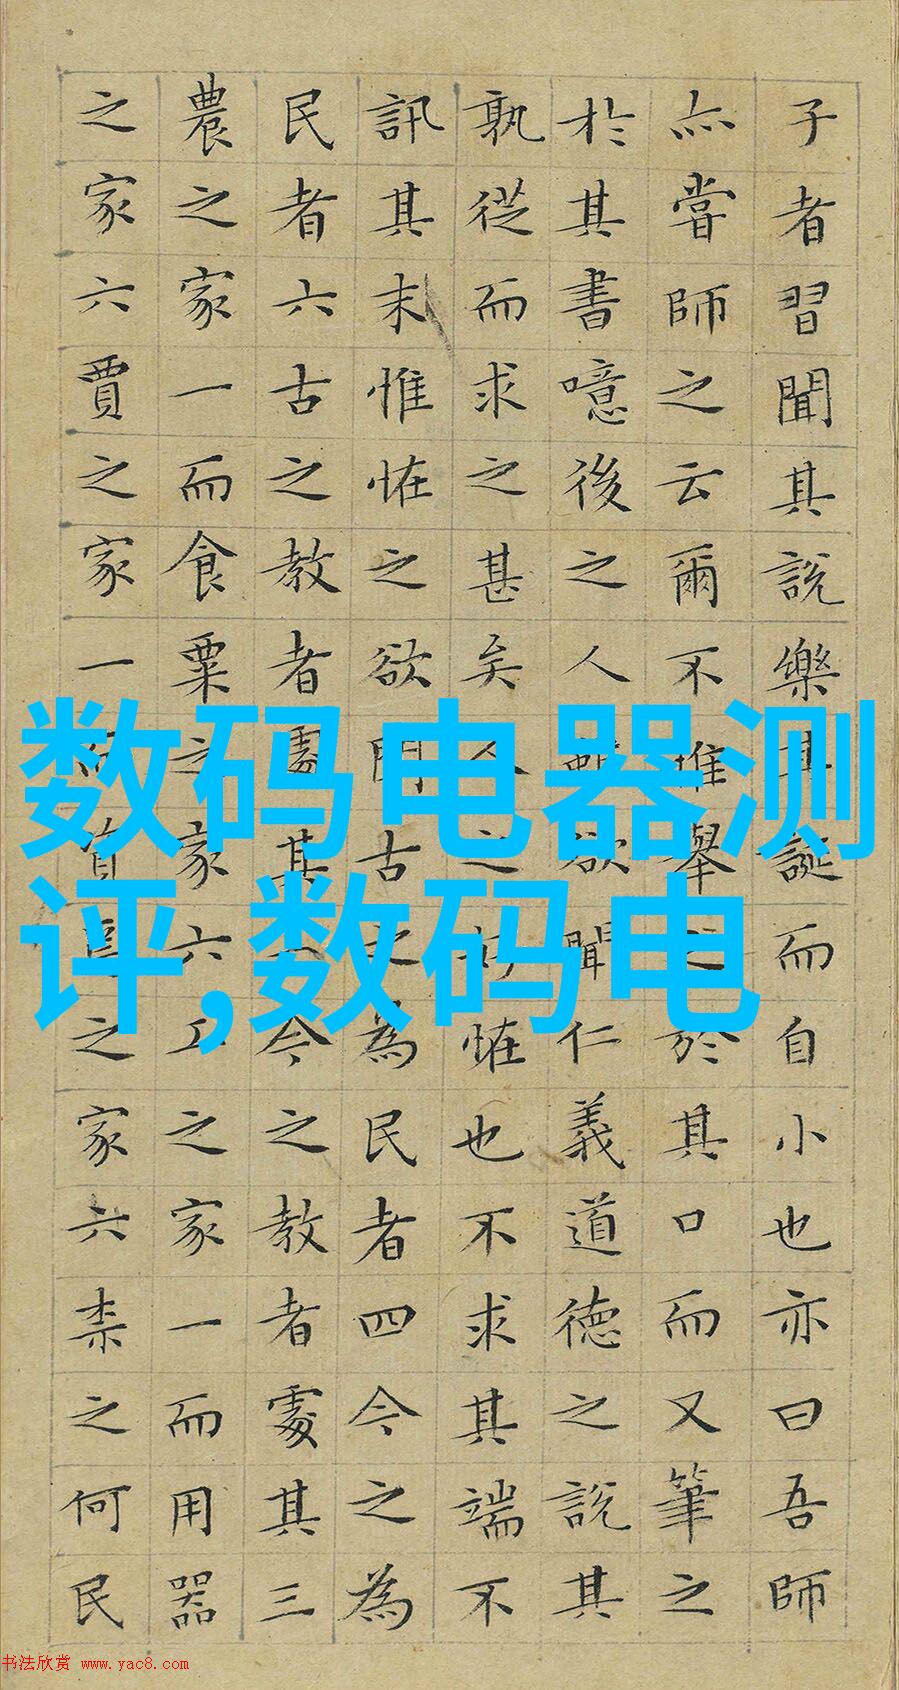 子者習聞其說樂其誕而自小也亦曰吾師
亦嘗師之云爾不惟舉之於其口而又筆之
於其書噫後之人雖欲聞仁義道德之說其
孰從而求之甚矣人之好怪也不求其端不
訊其末惟怪之欲聞古之為民者四今之為
民者六古之教者處其一今之教者處其三
農之家一而食粟之家六工之家一而用器
之家六賈之家一而資焉之家六柰之何民
数码电器测
评,数码电
书法欣赏 www.yac8.com